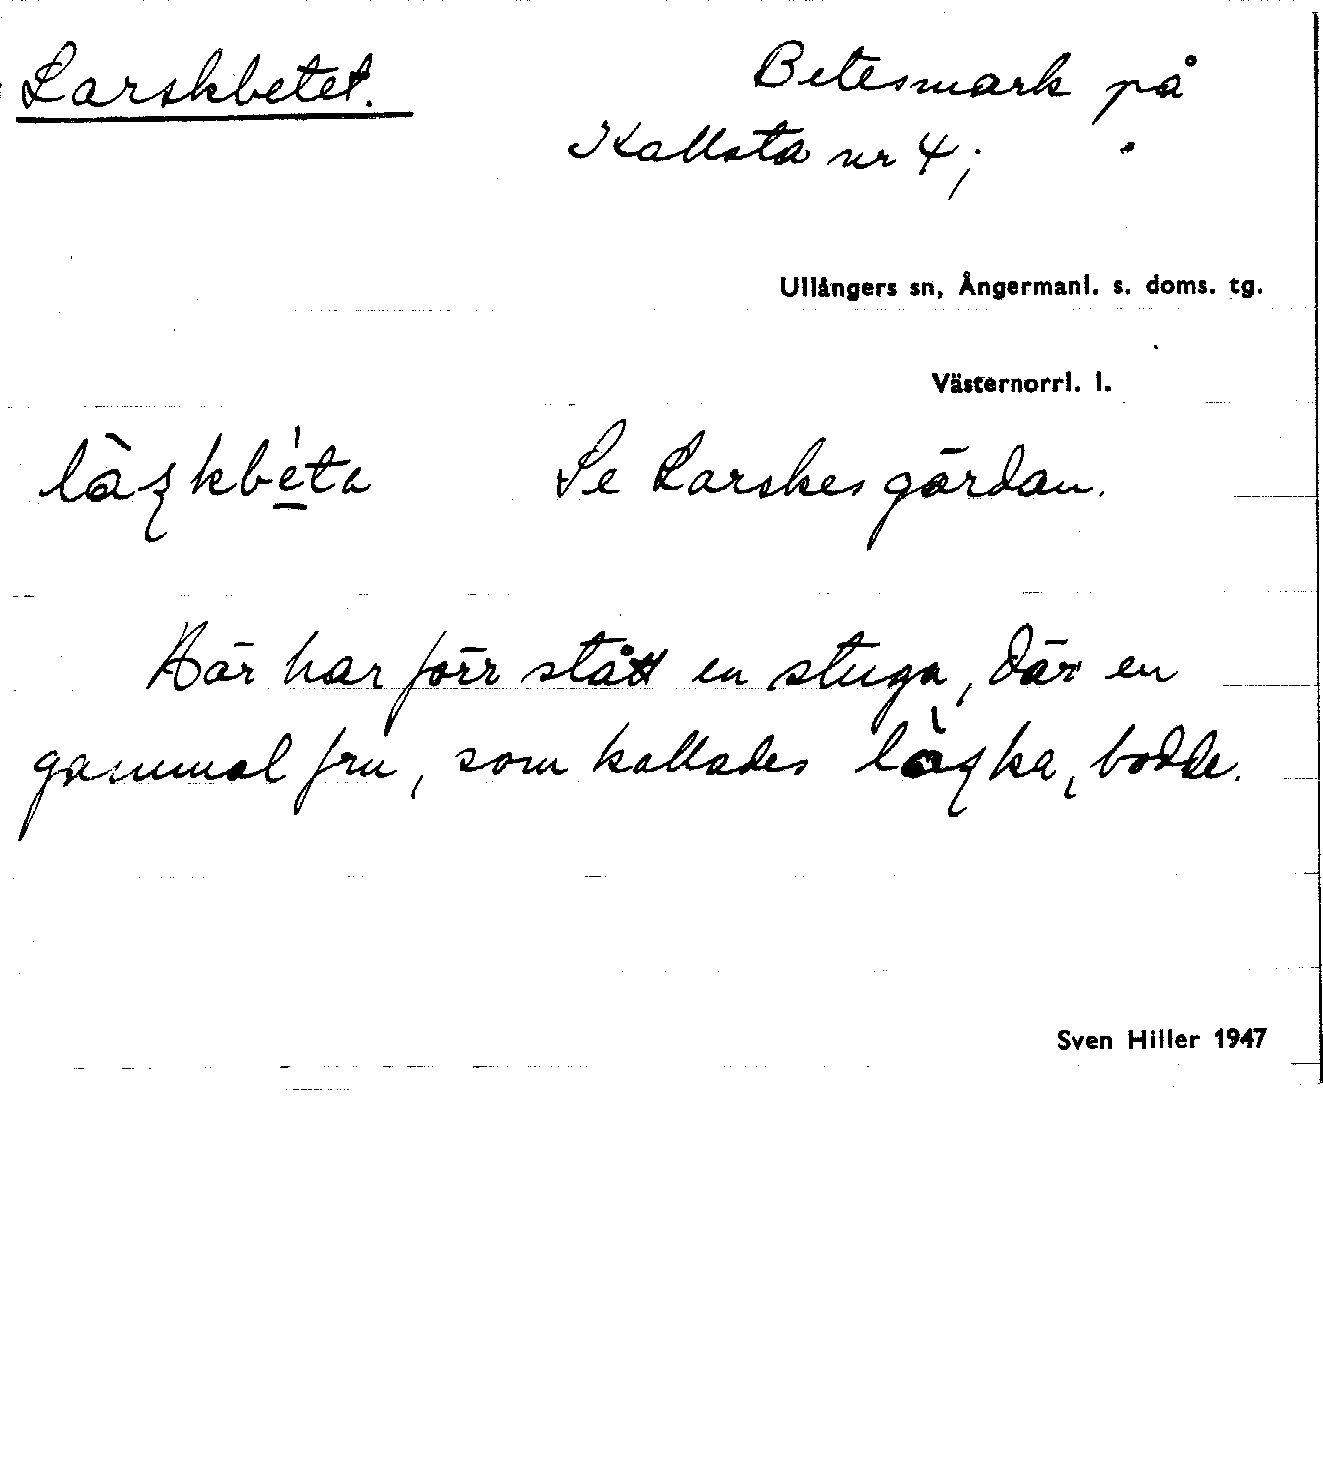 Larskbetet. Betesmark på
Kallsta nr 4;
Ullångers sn, Ångermanl. s. doms. tg.
Västernorrl. l.
Se Larskesgärdan.
Här har förr stått en stuga, där en
gammal fru, som kallades bodde.
Sven Hiller 1947